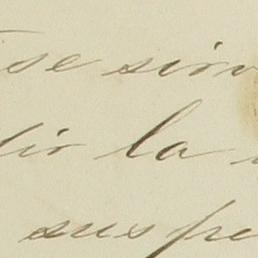 se sirv
dir la
suspe